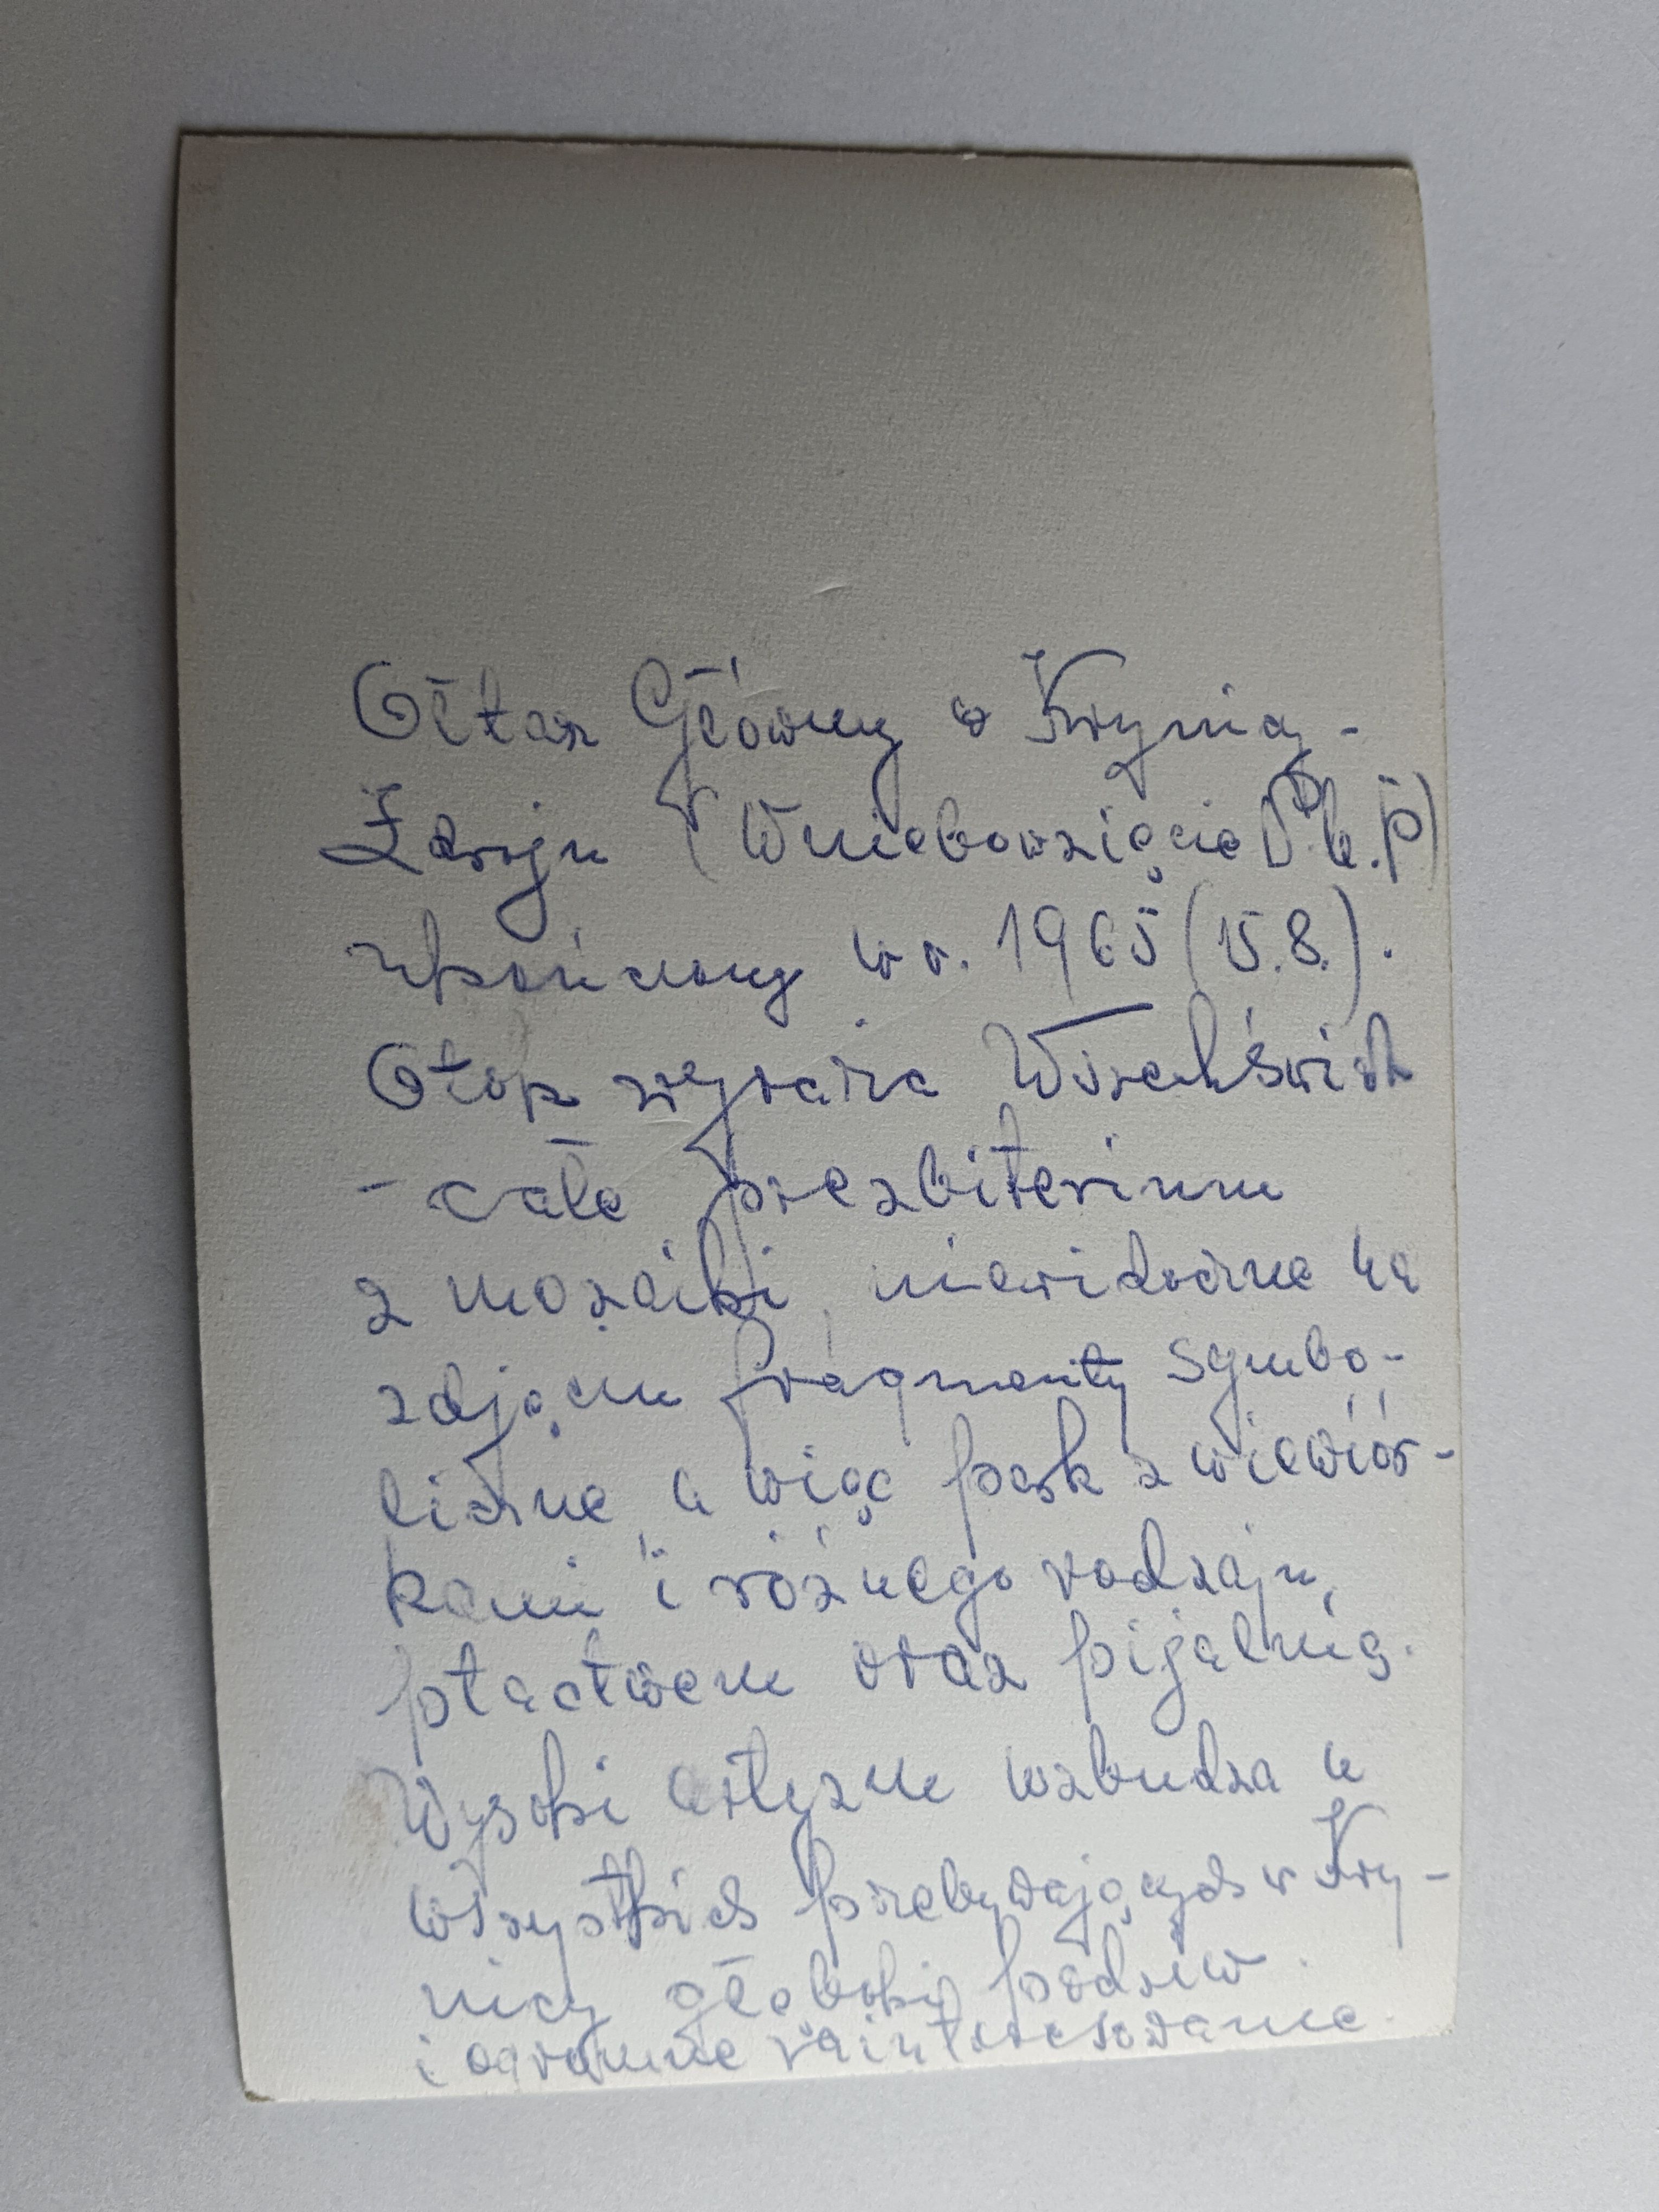 Ołtarz Główny w Krynicy-
Zdroju (Wniebowzięcie N.M.P)
ukończony w r. 1965 (15.8.).
Otok wyraża Wszechświat
- całe prezbiterium
z mozaiki, niewidoczne na
zdjęciu fragmenty symbo-
liczne, a więc park z wiewiór-
kami i różnego rodzaju
ptactwem oraz pijalnią.
Wysoki artyzm wzbudza u
wszystkich przebywających w Kry-
nicy głęboki podziw
i ogromne zainteresowanie.